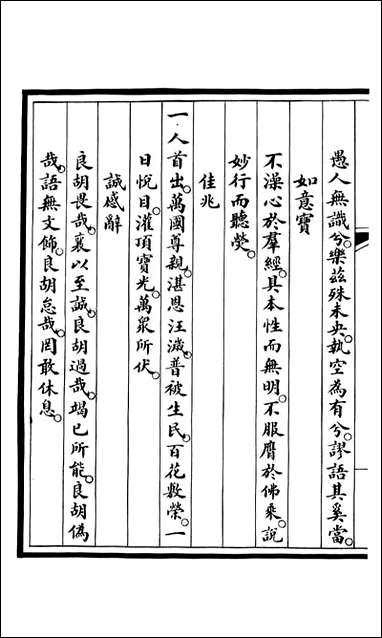 愚人無識兮。樂茲殊未央。執空為有兮。謬語其奚當。
如意寶
不澡心於羣經。具本性而無明。不服膺於佛乘。說
妙行而聽熒。
佳兆
一人首出。萬國尊親。湛恩汪濊。普被生民。百花敷榮。一
日悅目。灌頂寶光。萬眾所伏。
誠感辭
良胡畏哉。襄以至誠。良胡過哉。竭已所能。良胡偽
哉。語無文飾。良胡怠哉。罔敢休息。